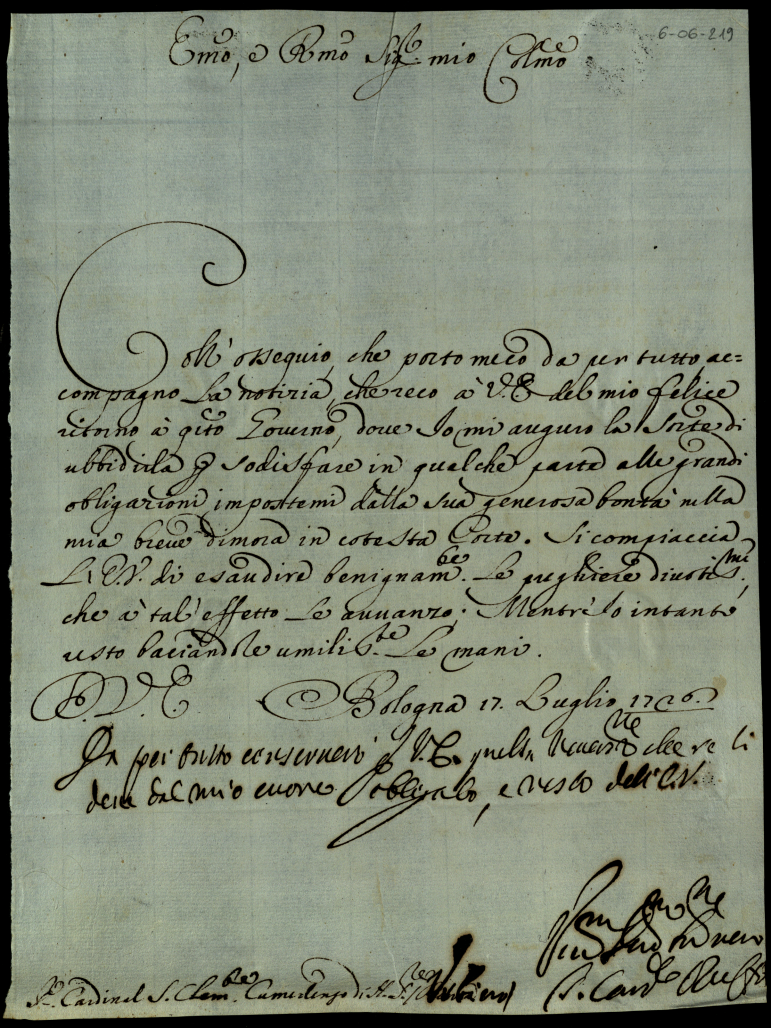 6-06-219
Emo, e Rmo Sigre mio Colmo
Coll' ossequio, che porto meco da per tutto ac=
compagno La notizia, che reco à V.E. del mio felice
ritorno à qsto Governo, dove Io mi auguro la sorte di
ubbidirla p sodisfare in qualche parte alle grandi
obligazioni impostemi dalla sua generosa bontà nella
mia breve dimora in cotesta Corte. Si compiaccia
L'E.V. di esaudire benignamte. Le preghiere divotismi,
che à tal' effetto Le avvanzo; Mentre Io intanto
resto baciandole umiliste. Le mani.
D. V. E. Bologna 17. Luglio 1726.
Da per tutto conserverò p V.E. quella che
dal mio cuore obligato, e resto dell'E.V.
Cardinal S. Clemte. Camerlengo di
S. Cardle Ruffo